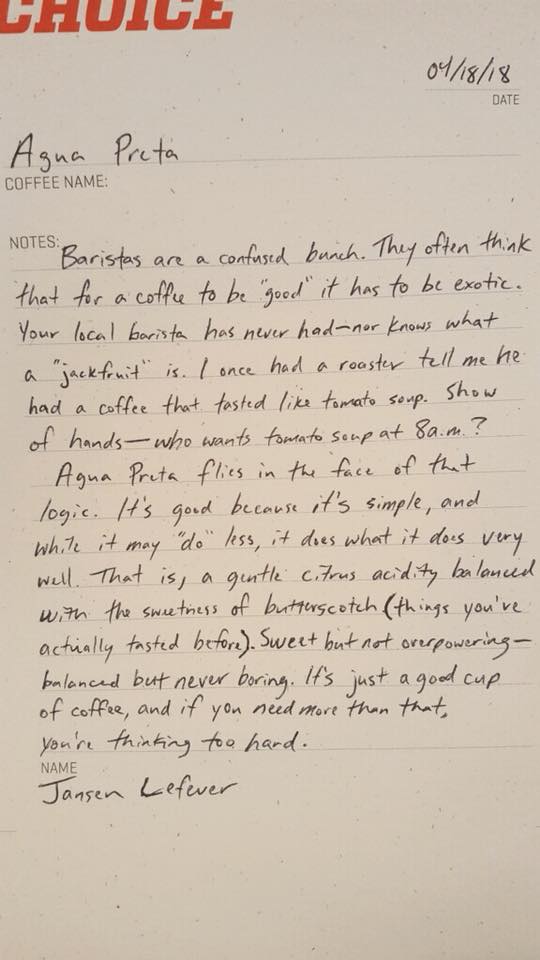 CHOICE
04/18/18
DATE
Agua Preta
COFFEE NAME:
NOTES: Baristas are a confused bunch. They often think
that for a coffee to be "good" it has to be exotic.
Your local barista has never had—nor knows what
a "jackfruit" is. I once had a roaster tell me he
had a coffee that tasted like tomato soup. Show
of hands—who wants tomato soup at 8a.m.?
Agua Preta flies in the face of that
logic. It's good because it's simple, and
while it may "do" less, it does what it does very
well. That is, a gentle citrus acidity balanced
with the sweetness of butterscotch (things you've
actually tasted before). Sweet but not overpowering—
balanced but never boring. It's just a good cup
of coffee, and if you need more than that,
you're thinking too hard.
NAME
Jansen Lefever